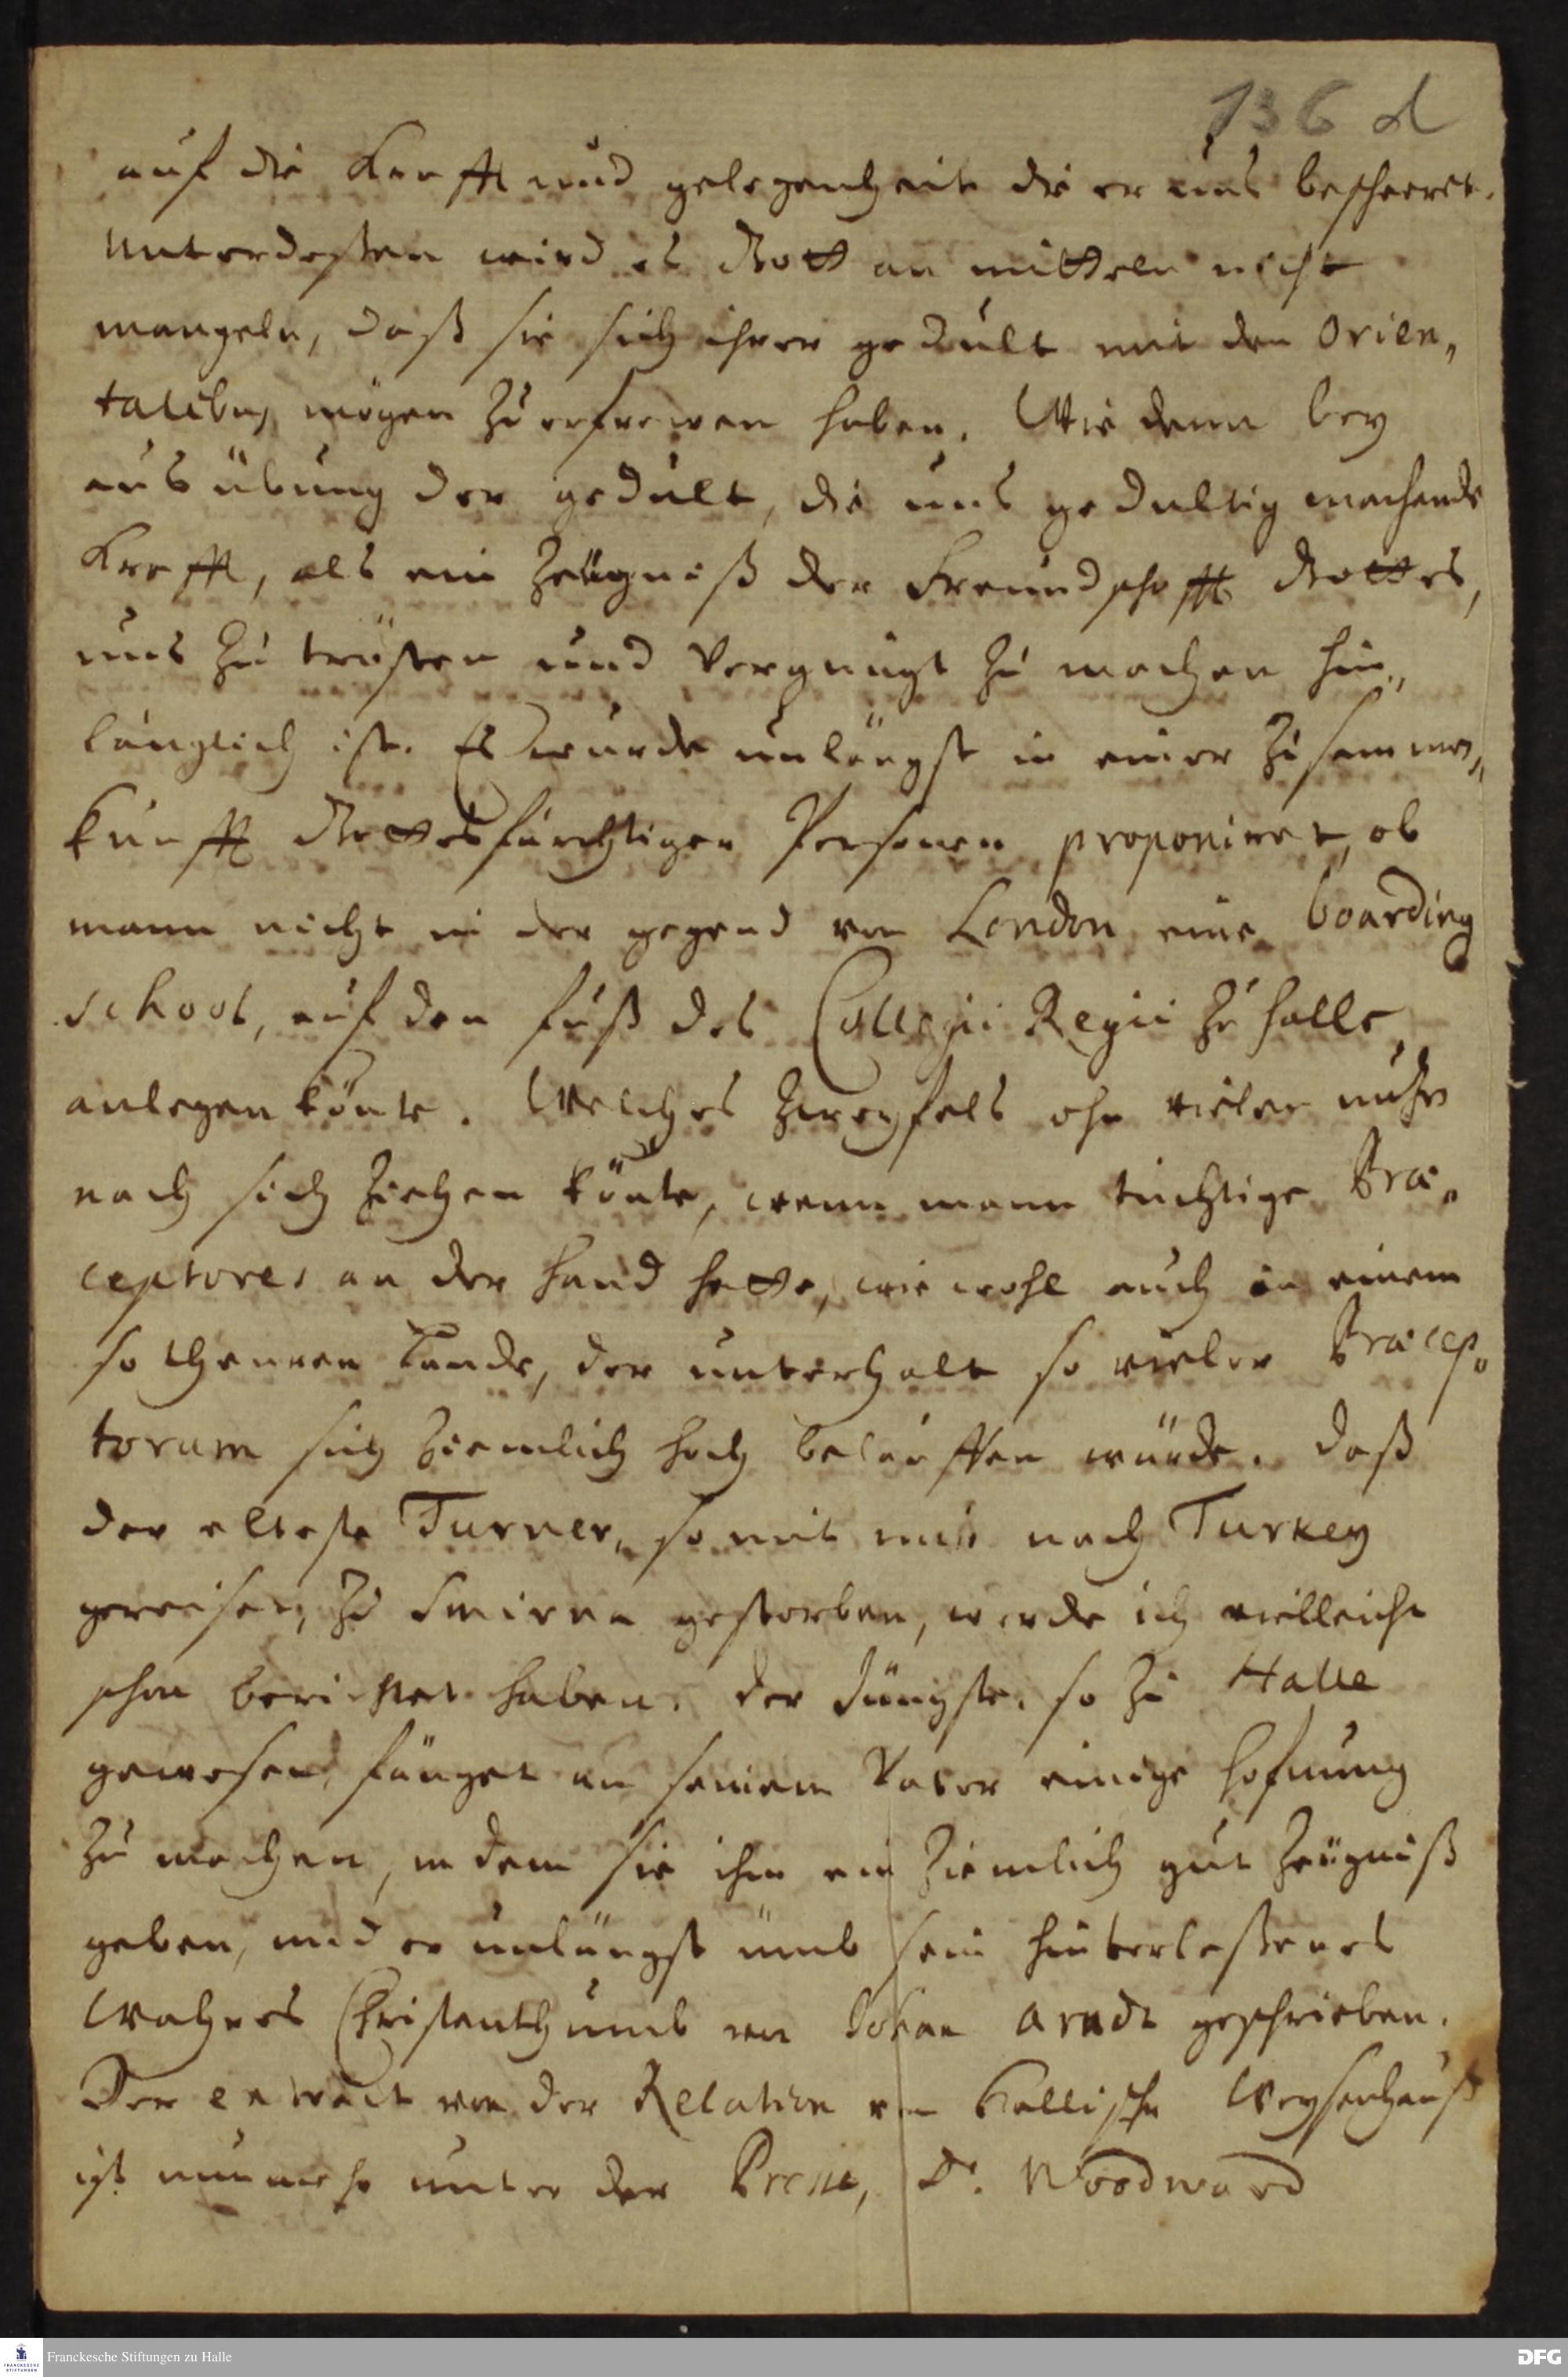 136 d
auf die Krafft und gelegenheit die er uns bescheeret.
Unterdeßen wird es Gott an mitteln nicht
mangeln, daß sie sich ihrer gedult mit den Orien„
talibus mögen zu erfrewen haben. Wie denn bey
ausübung der gedult, die uns gedultig machende
Krafft, als ein Zeügniß der Freundschafft Gottes,
uns zu trösten und vergnügt zu machen hin„
länglich ist. Es wurde unlängst in einer Zusammen„
kunfft Gottesfürchtigen Personen proponiret, ob
mann nicht in der gegend von London eine boarding
school, auf den fuß des Collegii Regii zu Halle,
anlegen könte. Welches zweyfels ohn vielen nutzen
nach sich ziehen könte, wenn mann tüchtige Præ„
ceptores an der Hand hette, wie wohl auch in einem
so theuren Lande, der unterhalt so vieler Præcep„
torum sich ziemlich hoch belauffen würde. Daß
der elteste Turner, so mit mir nach Turkey
gereiset, zu Smirna gestorben, werde ich vielleicht
schon berichtet haben. Der Jüngste, so zu Halle
gewesen, fänget an seinem Vater einige Hofnung
zu machen, in dem sie ihm ein ziemlich gut Zeügniß
geben, und er unlängst ümb sein hinterlaßenes
Wahres Christenthumb von Johan Arndt geschrieben.
Der extract von der Relation vom Hallischen Weysenhauß
ist nunmehr unter der Presse, Dr. Woodward
Franckesche Stiftungen zu Halle
FRANCKESCHE STIFTUNGEN
DFG